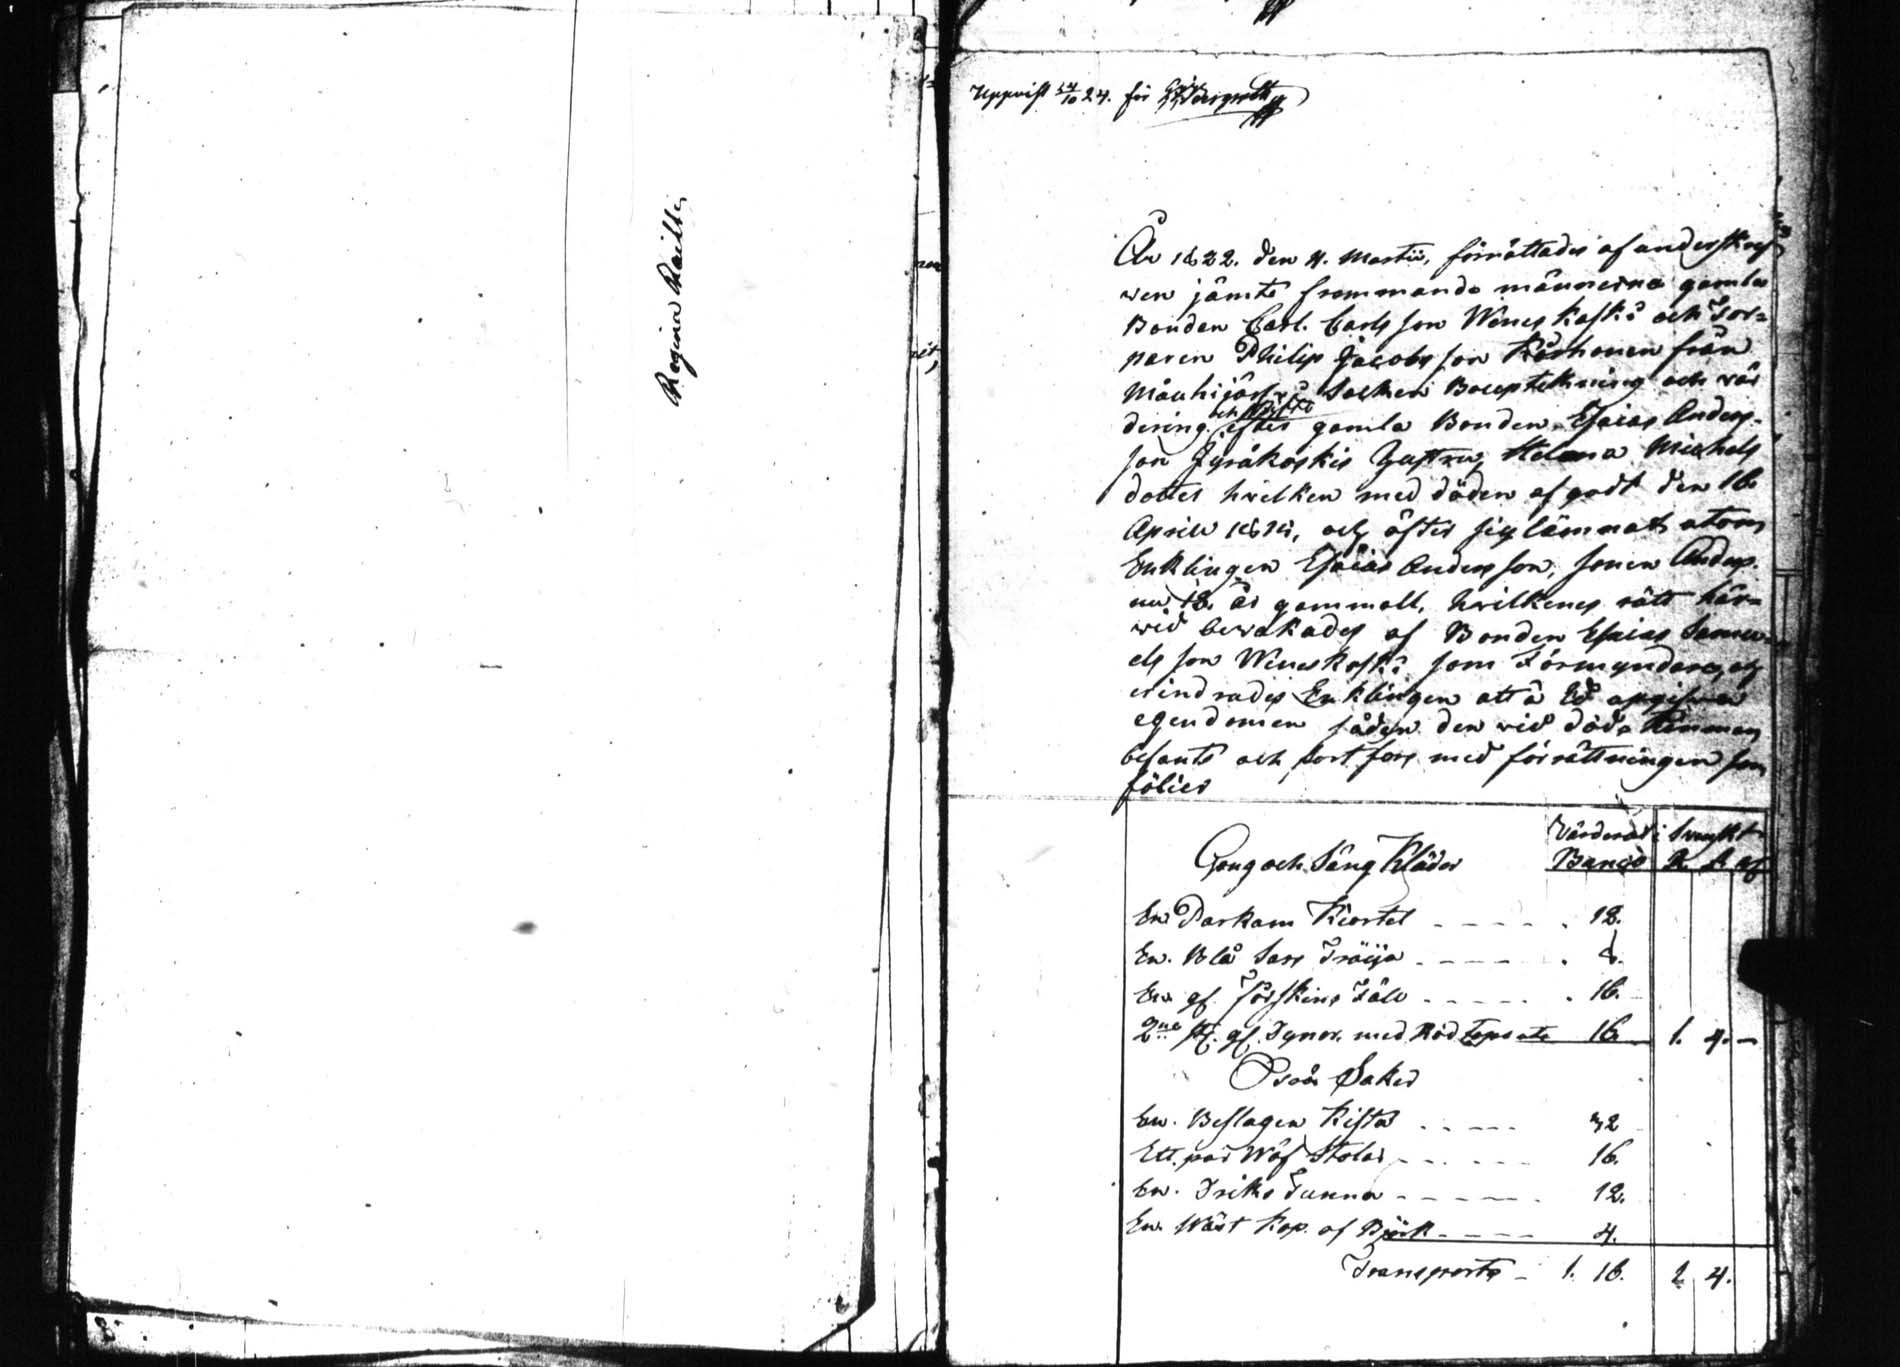 Regina Raitti
Uppvist 14/10 24. för
År 1822. den 4. Martii, förrättades af underskref
wen jämte frammande männerna gamla
Bonden Carl. Carlsson Wenes koski och Tor=
paren Philip Jacobsson Kårhonen från
Mouhijärfvi Socken Bouptekning och vär
dering efter gamla Bonden Esaias Anders-
son Jyräkoskis hustru, Helena Michels
dotter hvilken med döden afgådt den 16
April, och äfter sig lämnat utom
Enklingen Esaias Andersson, sonen Anders.
nu 18. år gammall, hvilkenes rätt här=
wid bevakades af Bonden Esaias Samu=
elsson Weneskoski som Förmyndare, och
erindrades Enklingen att å Ed uppgifva
egendomen sådan den vid döds timman
befants och fortfors med förrättningen som
följer
Gong och Säng Kläder Värderat i Svenskt
Banco R. s. rf
En Parkam Kiortel - - - - 12.
En. Blå Sars Tröija - - - - 8.
En gl. Fårskins Fäll - - - - 16.
2ne st. gl. Dynor. med Röd 16. 1. 4. -
Trä Saker
En. Beslagen Kista - - - - 32
Ett. par Wäf Stolar - - - - 16.
En. Driks Tunna - - - - 12.
En. Wäst Kop. af Björk - - - - 4.
Transporte - 1. 16. 2 4.